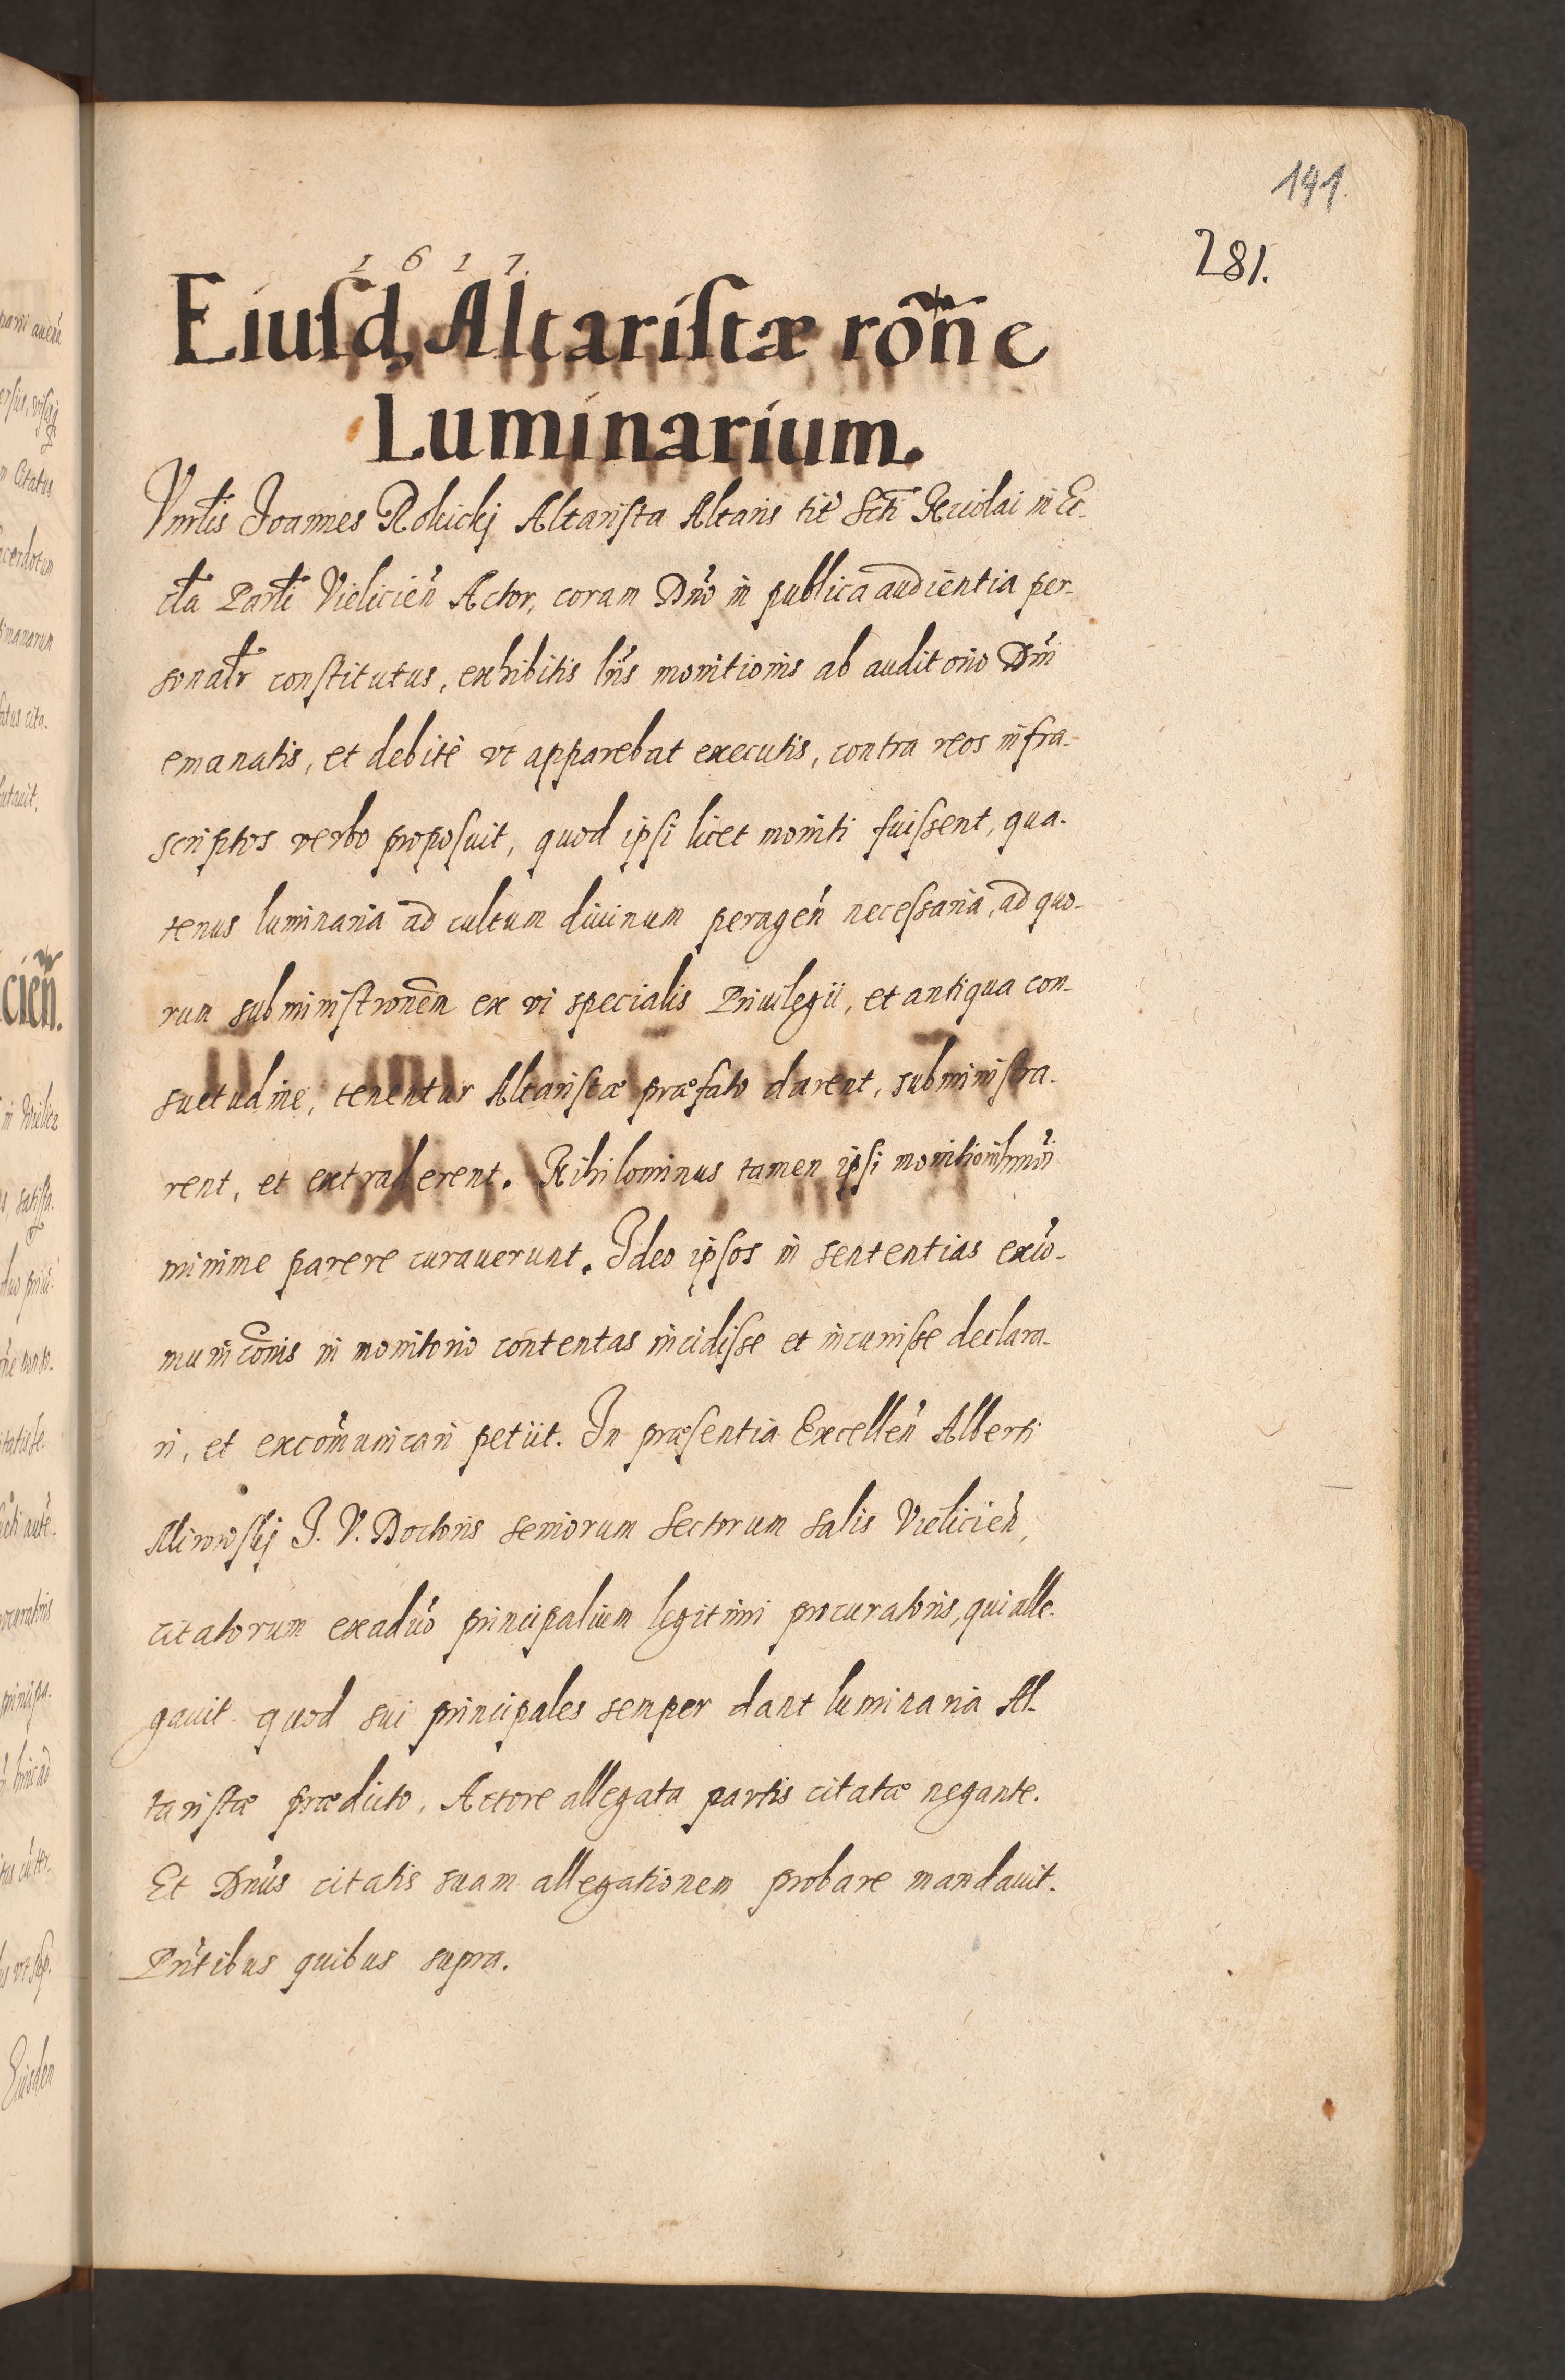 141.
281.
1 6 1 7.
Eiusd, Altaristæ rõne
Luminarium.
Vnrlis Joannes Rokickj Altarista Altaris tit Scti Nicolai in Ec-
cla Parli Vielicień Actor, coram Dńo in publica audientia per-
sonalr constitutus, exhibitis lris monitionis ab auditorio Dńi
emanatis, et debitè vt apparebat executis, contra reos infra-
scriptos verbo proposuit, quod ipsi licet moniti fuissent, qua-
tenus luminaria ad cultum diuinum perageń necessaria, ad quo-
rum subministronem ex vi specialis Priuilegii, et antiqua con-
suetudine, tenentur Altaristæ præfato darent, subministra-
rent, et extraderent. Nihilominus tamen ipsi monitionihmoi
minime parere curauerunt. Ideo ipsos in sententias exco-
municõnis in monitorio contentas incidisse et incurrisse declara-
ri, et excomunicari petiit. In præsentia Excelleń Alberti
J. V. Doctoris seniorum Sectorum Salis Vielicień,
citatorum exaduo principalium legitimi procuratoris, qui alle-
gauit quod sui principales semper dant luminaria Al-
taristæ prædicto, Actore allegata partis citatæ negante.
Et Dnús citatis suam allegationem probare mandauit.
Prńtibus quibus supra.